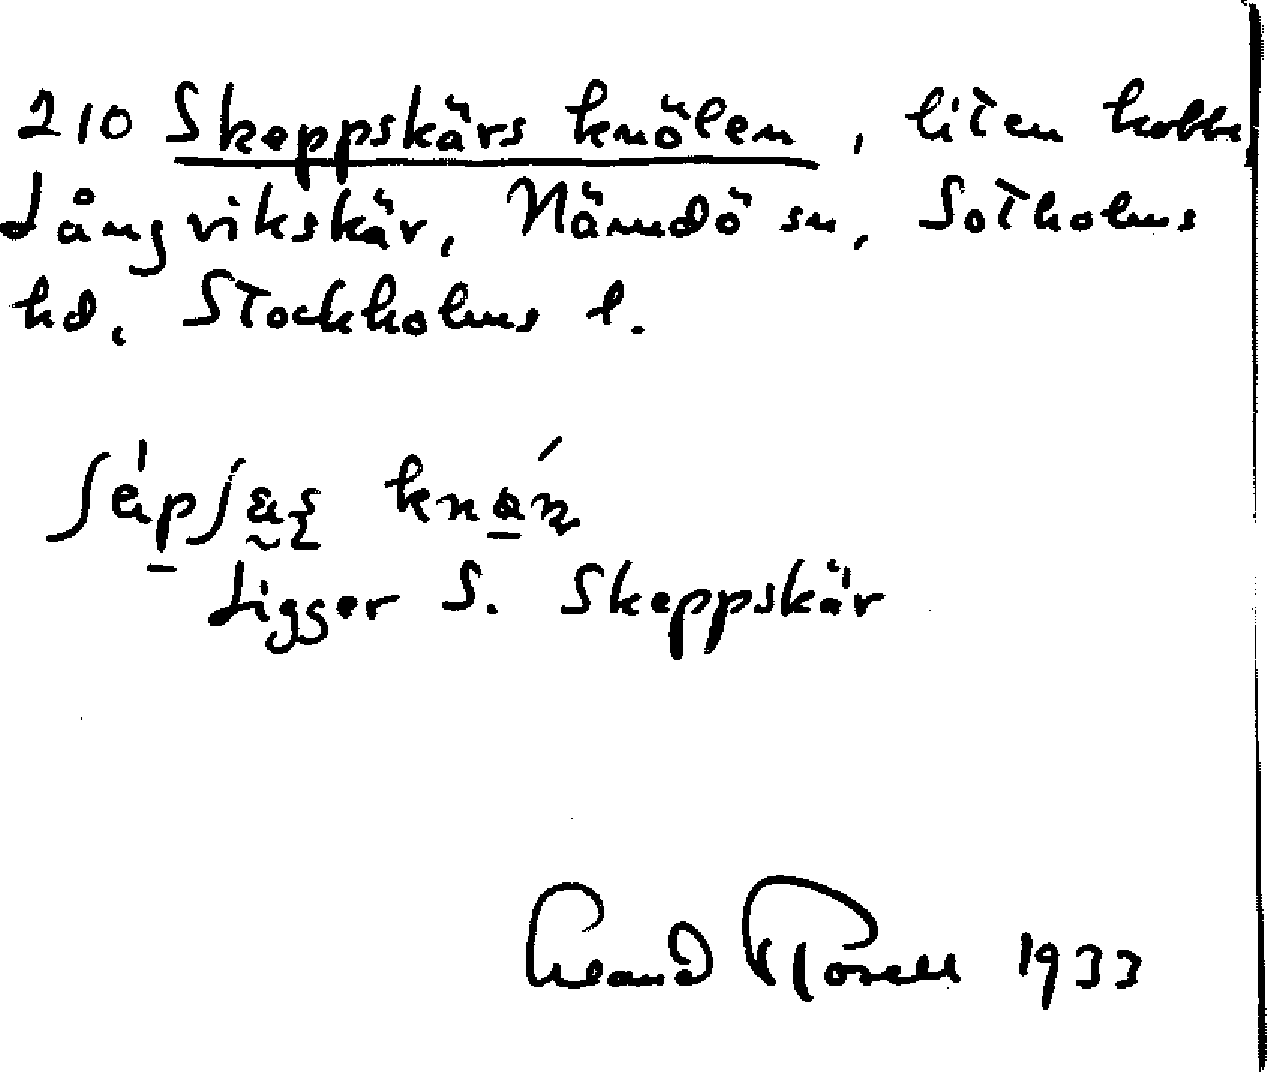 210 Skeppskärs knölen, liten kobbe,
Långvikskär, Nämdö sn, Sotholms
hd, Stockholms l.
Ligger S. Skeppskär
1933